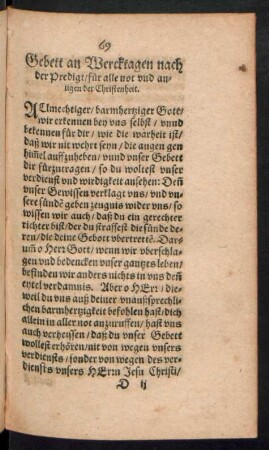 69
Gebett an Wercktagen nach
der Predigt/ für alle not vnd an-
ligen der Christenheit.
ALmechtiger/ barmhertziger Gott/
wir erkennen bey vns selbst/ vnnd
bekennen für dir/ wie die warheit ist/
daß wir nit wehrt seyn/ die augen gen
him̃el auffzuheben/ vnnd vnser Gebett
dir fürzutragen/ so du woltest vnser
verdienst vnd wirdigkeit ansehen: Deñ
vnser Gewissen verklagt vns/ vnd vn-
sere sünde geben zeugnis wider vns/ so
wissen wir auch/ daß du ein gerechter
richter bist/ der du straffest die sünde de-
ren/ die deine Gebott vbertretẽ. Dar-
um̃ o Herr Gott/ wenn wir vberschla-
gen vnd bedencken vnser gantzes leben/
befinden wir anders nichts in vns deñ
eytel verdamnis. Aber o HErr/ die-
weil du vns auß deiner vnaußsprechli-
chen barmhertzigkeit befohlen hast/ dich
allein in aller not anzuruffen/ hast vns
auch verheyssen/ daß du vnser Gebett
wollest erhören/ nit von wegen vnsers
verdiensts/ sonder von wegen des ver-
diensts vnsers HErrn Jesu Christi/
D ij